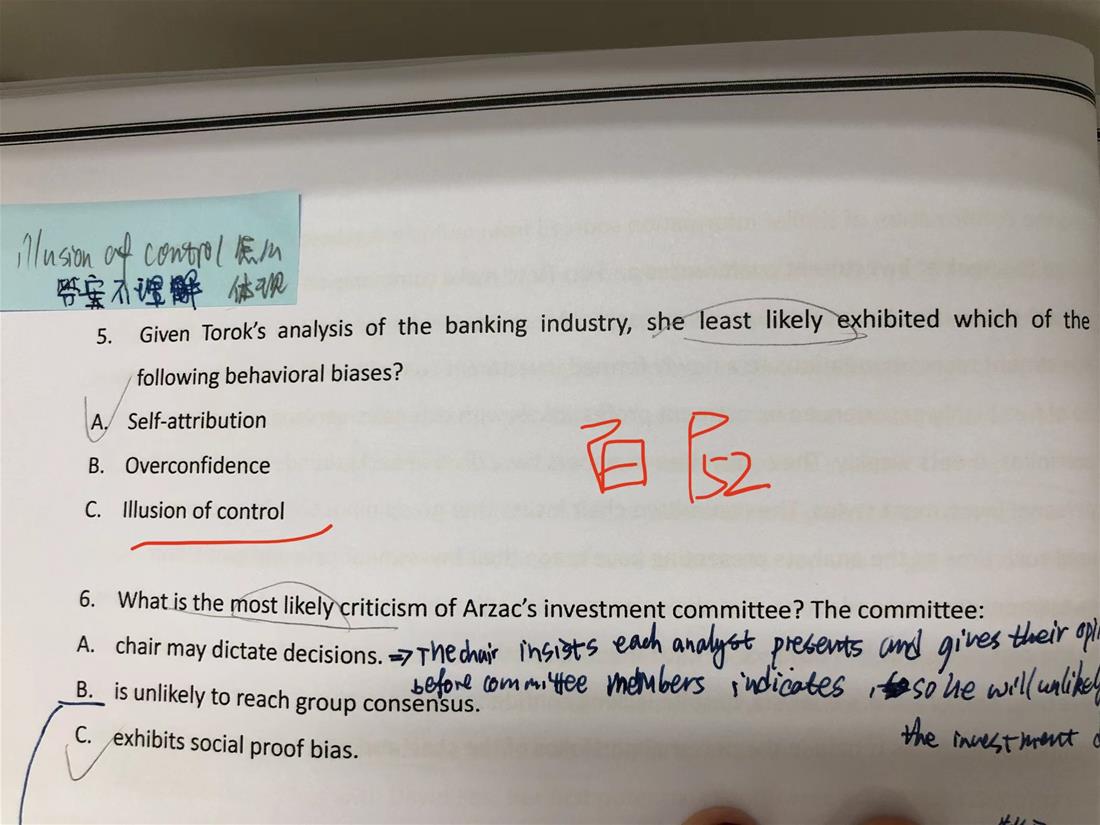 illusion of control 怎么
答案不理解 体现
5. Given Torok's analysis of the banking industry, she least likely exhibited which of the
following behavioral biases?
A. Self-attribution
B. Overconfidence
C. Illusion of control
百 P52
6. What is the most likely criticism of Arzac's investment committee? The committee:
A. chair may dictate decisions. ⇒ The chair insists each analyst presents and gives their opi
before committee members indicates, so he will unlikely
B. is unlikely to reach group consensus.
the investment
C. exhibits social proof bias.